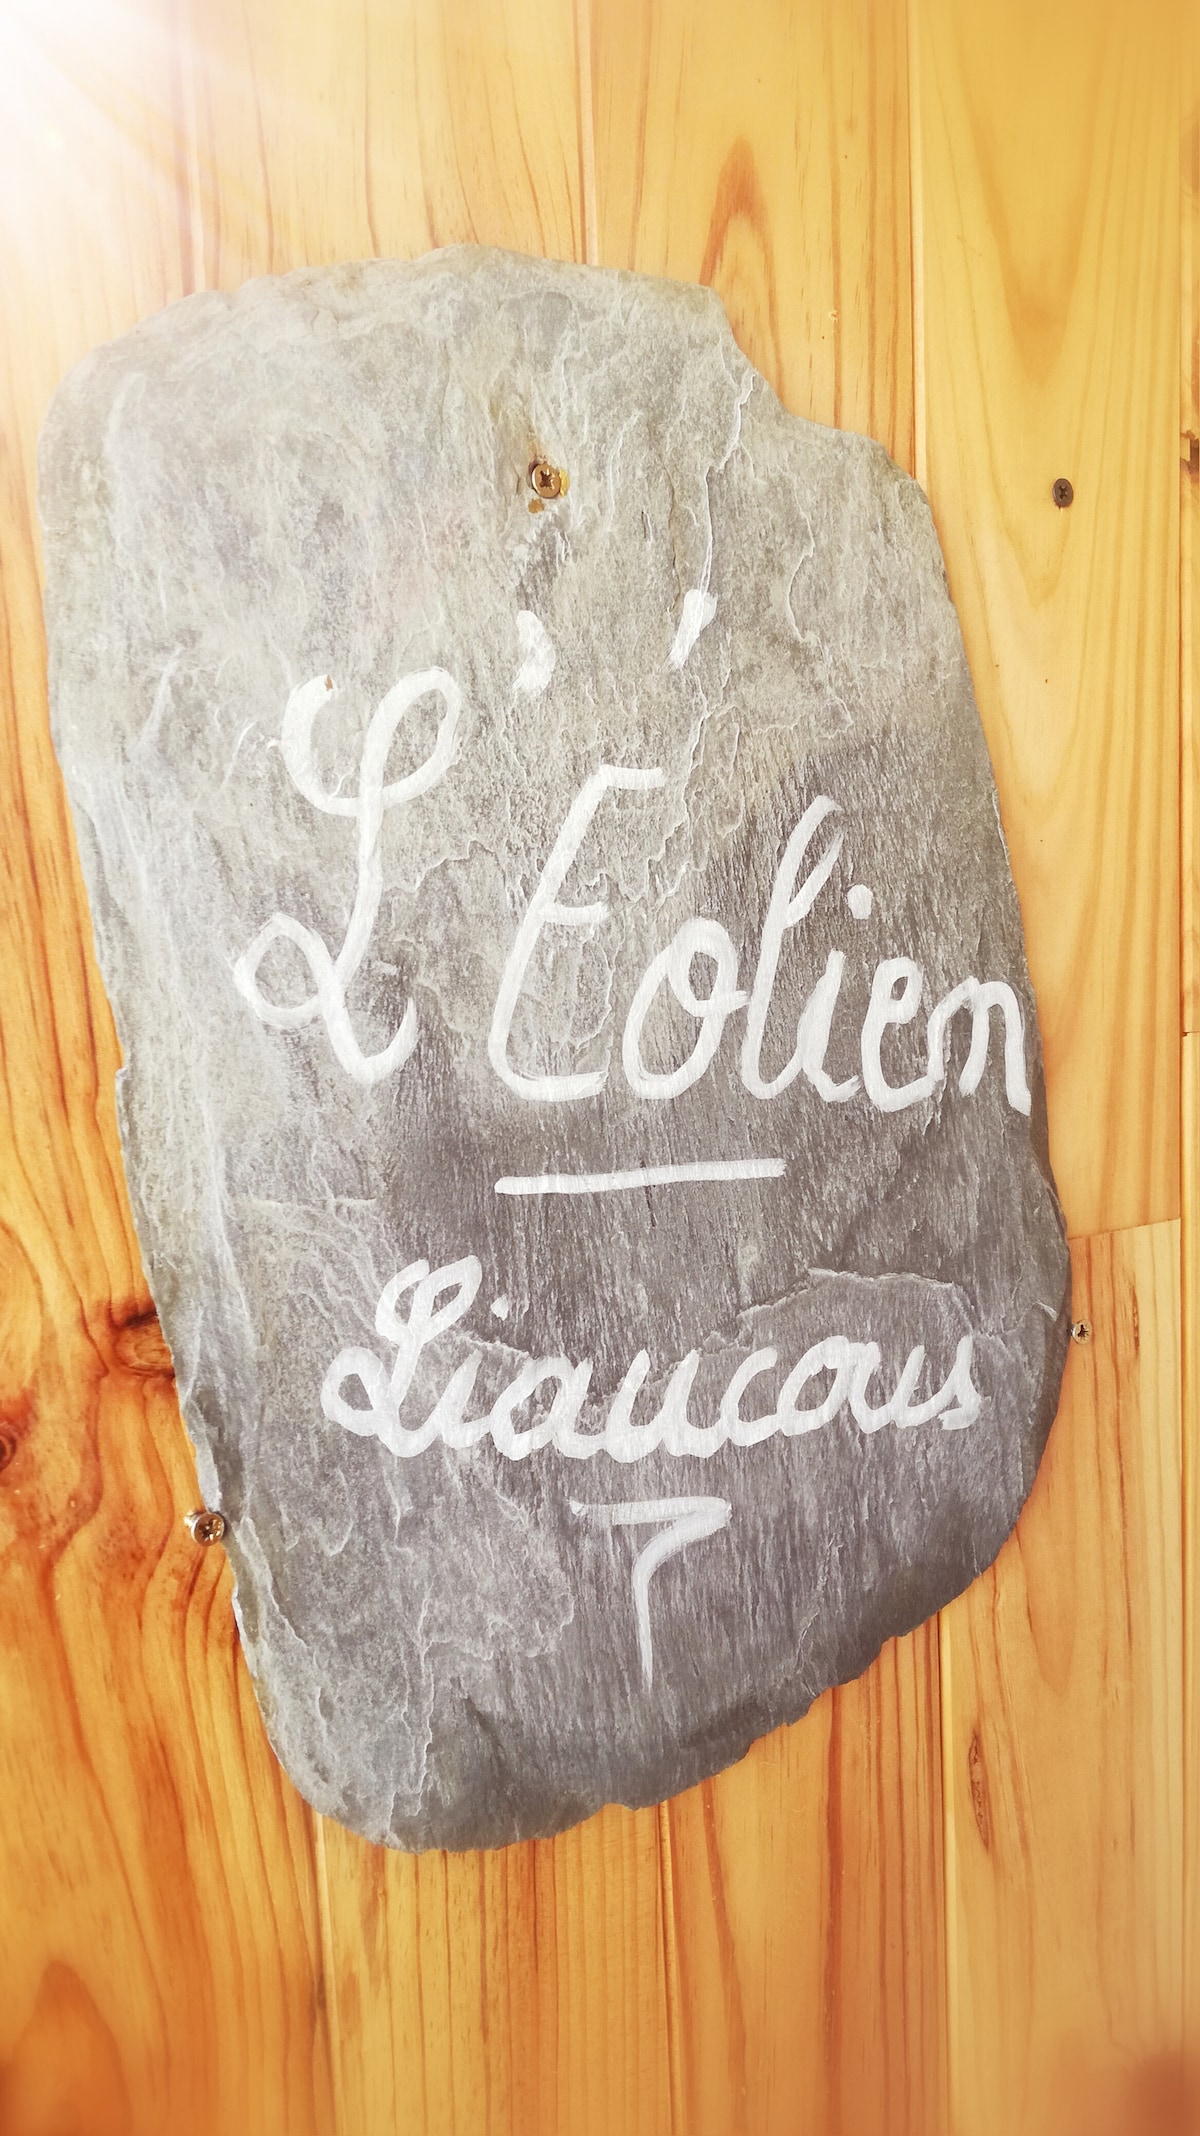 L'Éolien
Liaucous
7